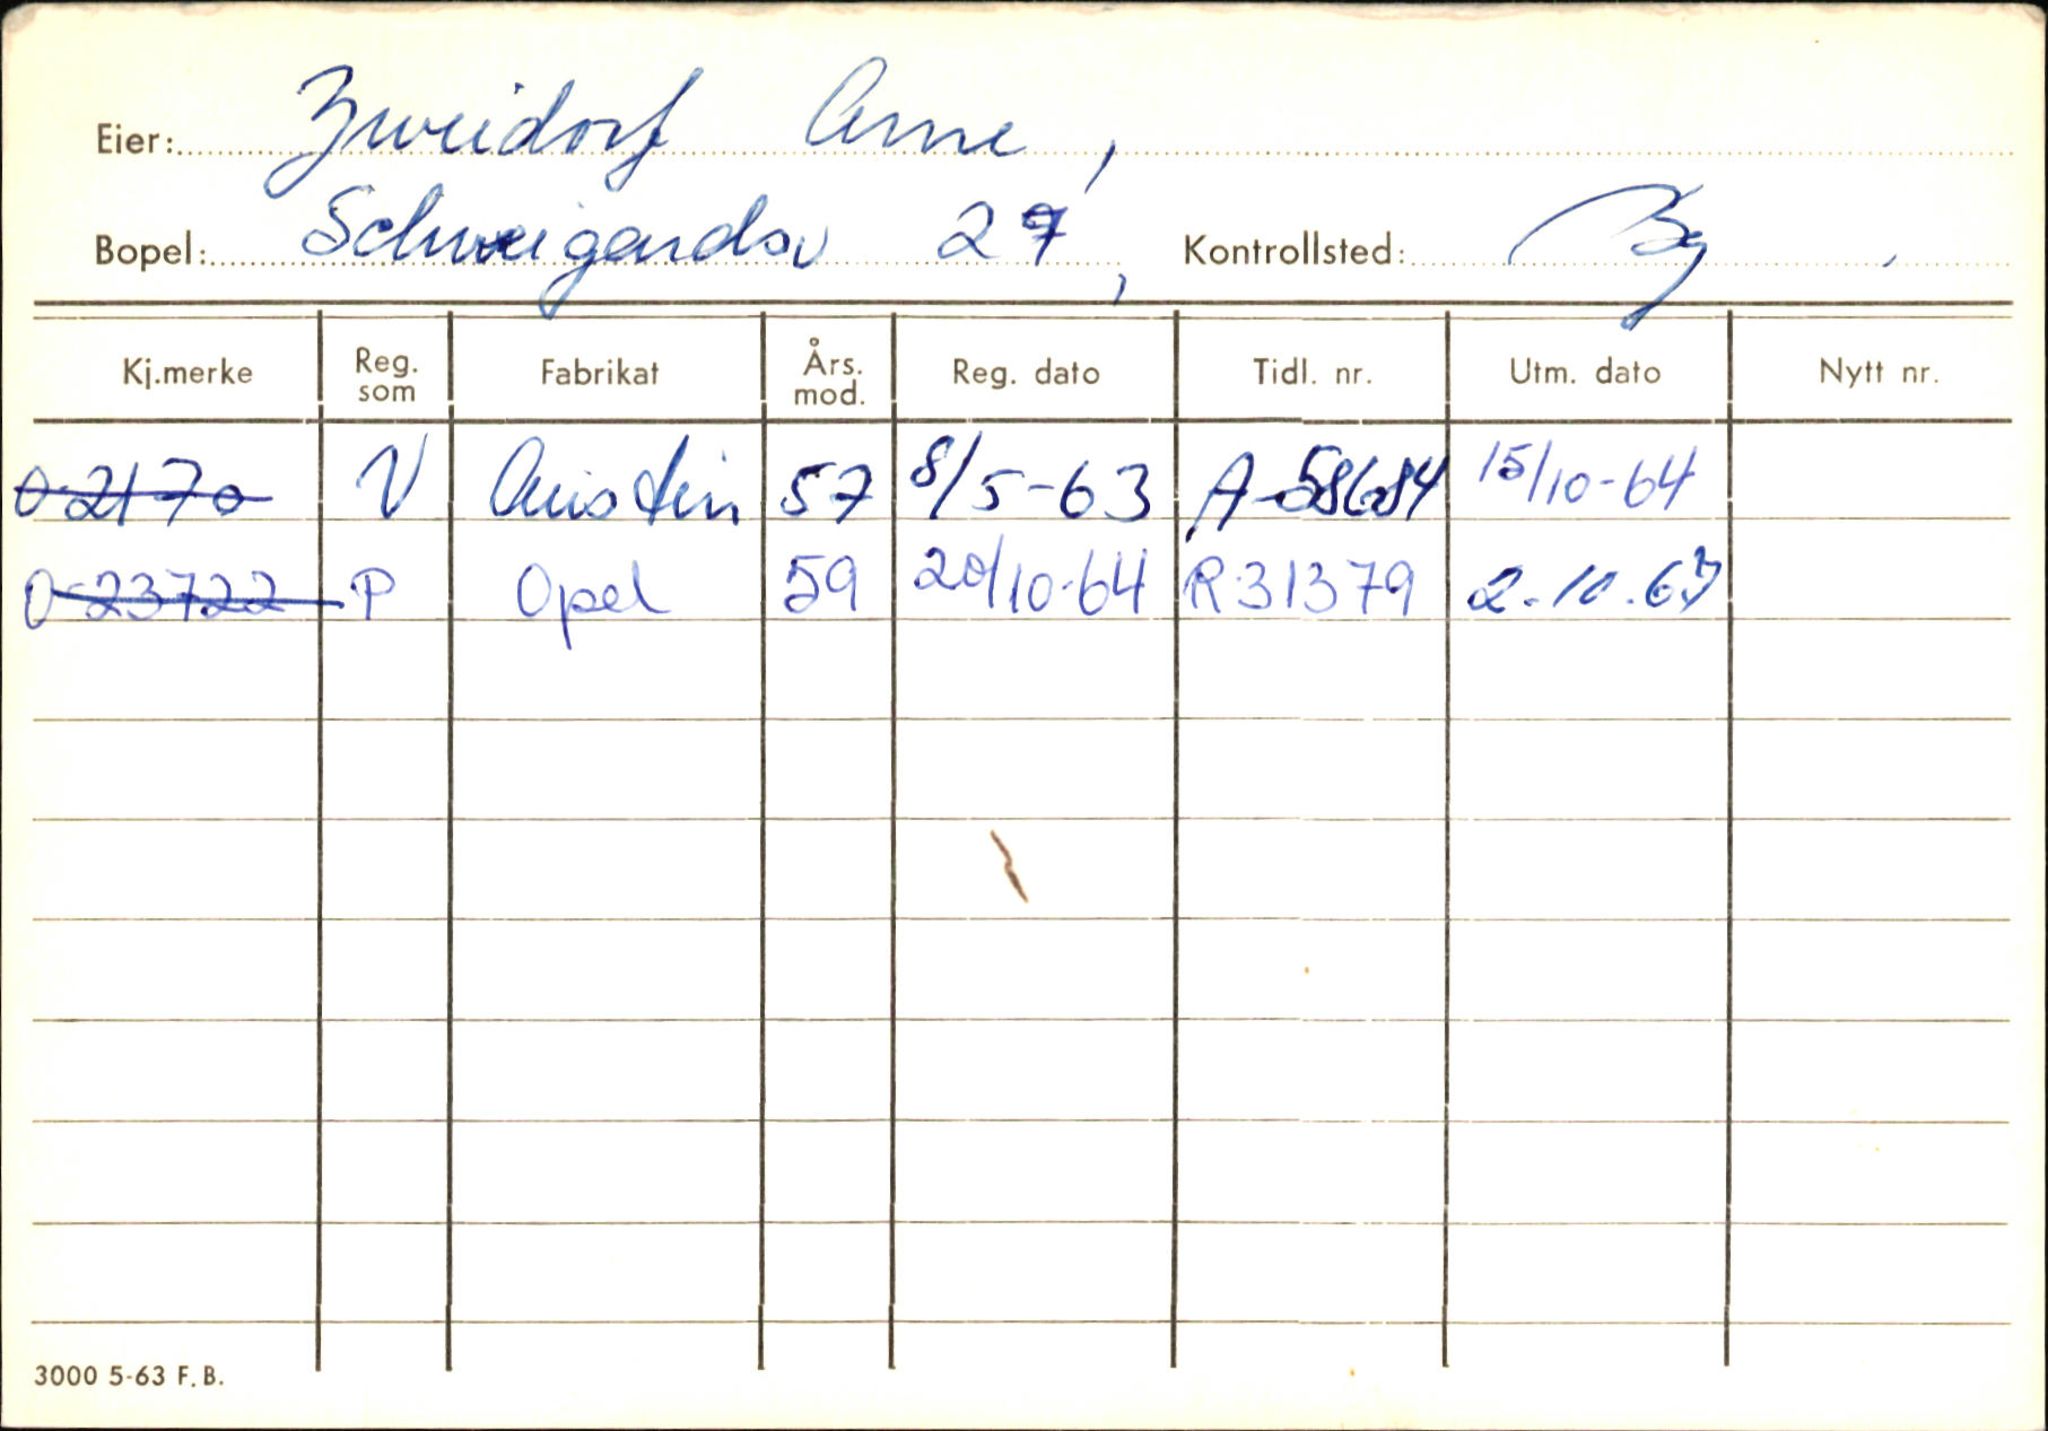 Eier: Zweidorf Arne,
Bopel: Schweigardsv 27, Kontrollsted: Bg
Kj.merke Reg. som Fabrikat Års. mod. Reg. dato Tidl. nr. Utm. dato Nytt nr.
O-2170 V Austin 57 8/5-63 A-58684 15/10-64
O-23722 P Opel 59 20/10-64 R-31379 2.10.67
3000 5-63 F.B.